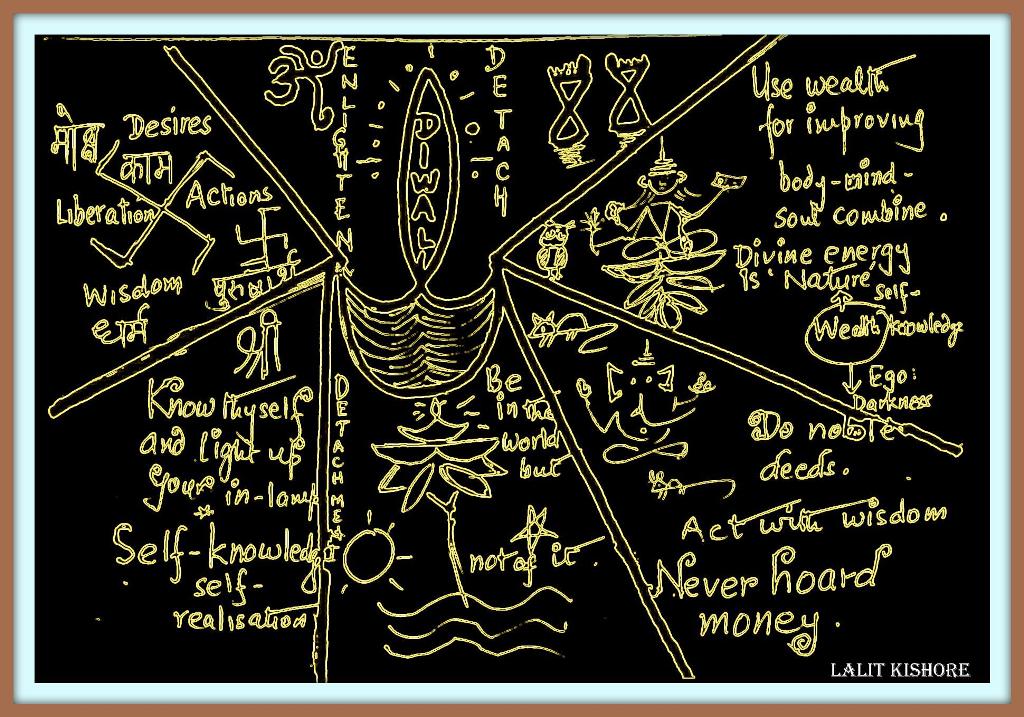 ॐ
ENLIGHTEN
DIWALI
DETACH
मोक्ष
Desires
काम
Liberation
Actions
Wisdom
धर्म
Use wealth
for improving
body-mind-
soul combine.
Divine energy
Is 'Nature'
self-
Wealth knowledge
Ego:
Darkness
श्री
Know thyself
and light up
your in-lamp
Self-knowledge
self-
realisation
DETACHMENT
Be
in the
world
but
not of it.
Do noble
deeds.
Act with wisdom
Never hoard
money.
LALIT KISHORE